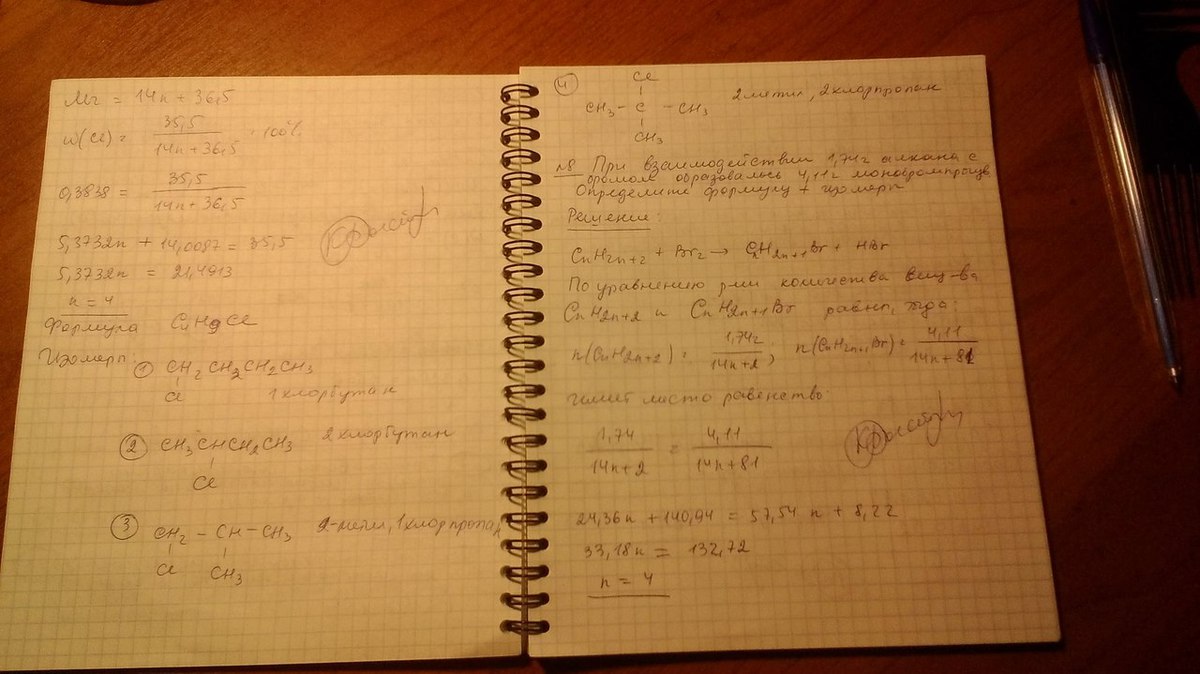 Mr = 14n + 36,5
w(Cl) = 35,5 / 14n + 36,5 · 100%
0,3838 = 35,5 / 14n + 36,5
5,3732n + 14,0087 = 35,5
5,3732n = 21,4913
n = 4
Формула C4H9Cl
Изомеры:
① CH2CH2CH2CH3
Cl
1хлорбутан
② CH3CHCH2CH3 2хлорбутан
Cl
③ CH2 – CH – CH3 2-метил, 1хлорпропан
Cl CH3
④ Cl
CH3 – C – CH3 2метил, 2хлорпропан
CH3
№8 При взаимодействии 1,74г алкана с
бромом образовалось 4,11г монобромпроизв.
Определите формулу + изомеры
Решение:
CnH2n+2 + Br2 → CnH2n+1Br + HBr
По уравнению р-ии количества вещ-ва
CnH2n+2 и CnH2n+1Br равны, тогда:
n(CnH2n+2) = 1,74г / 14n+2; n(CnH2n+1Br) = 4,11 / 14n+81
имеет место равенство:
1,74 / 14n+2 = 4,11 / 14n+81
24,36n + 140,94 = 57,54n + 8,22
33,18n = 132,72
n = 4